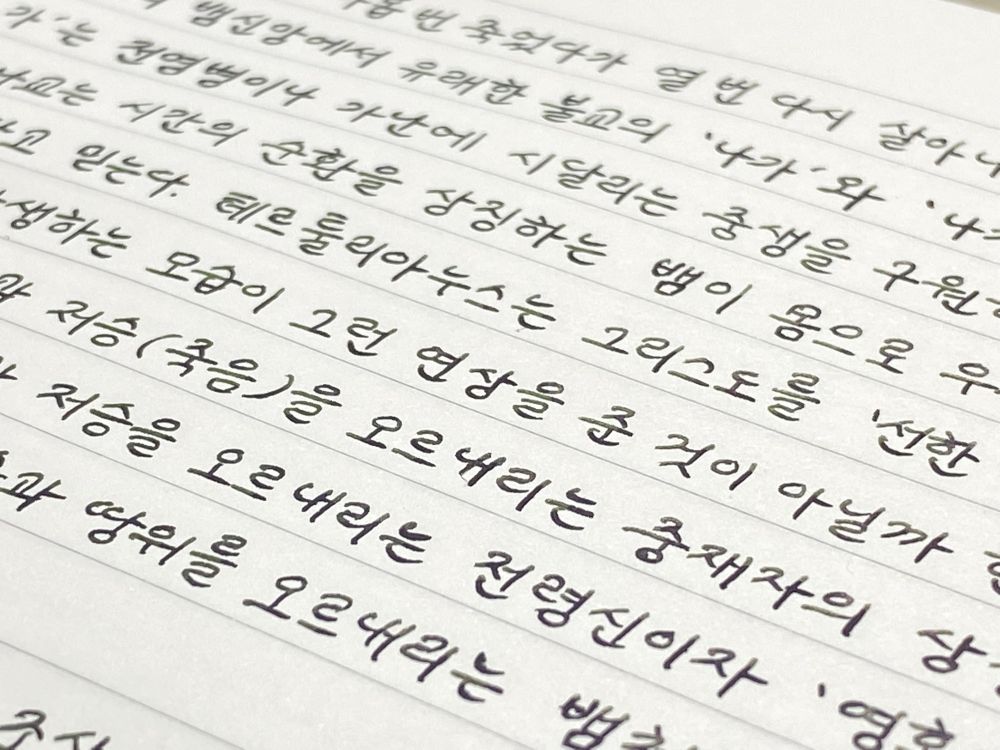 번 죽었다가 열 번 다시 살아나
뱀신앙에서 유래한 불교의 '나가'와 '나가
가'는 전염병이나 가난에 시달리는 중생을 구원
교는 시간의 순환을 상징하는 뱀이 몸으로 우
고 믿는다. 테르툴리아누스는 그리스도를 '선한
생하는 모습이 그런 연상을 준 것이 아닐까
저승(죽음)을 오르내리는 중재자의 상
저승을 오르내리는 전령신이자 '영
과 땅위를 오르내리는 뱀